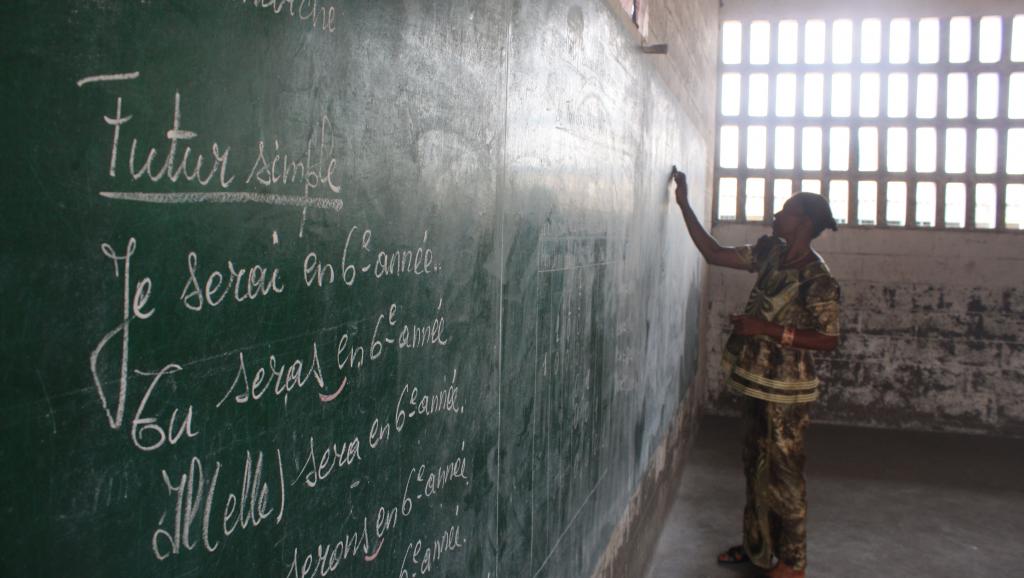 Futur simple
Je serai en 6e année.
Tu seras en 6e année
Il (elle) sera en 6e année.
serons en 6e année
6e année.